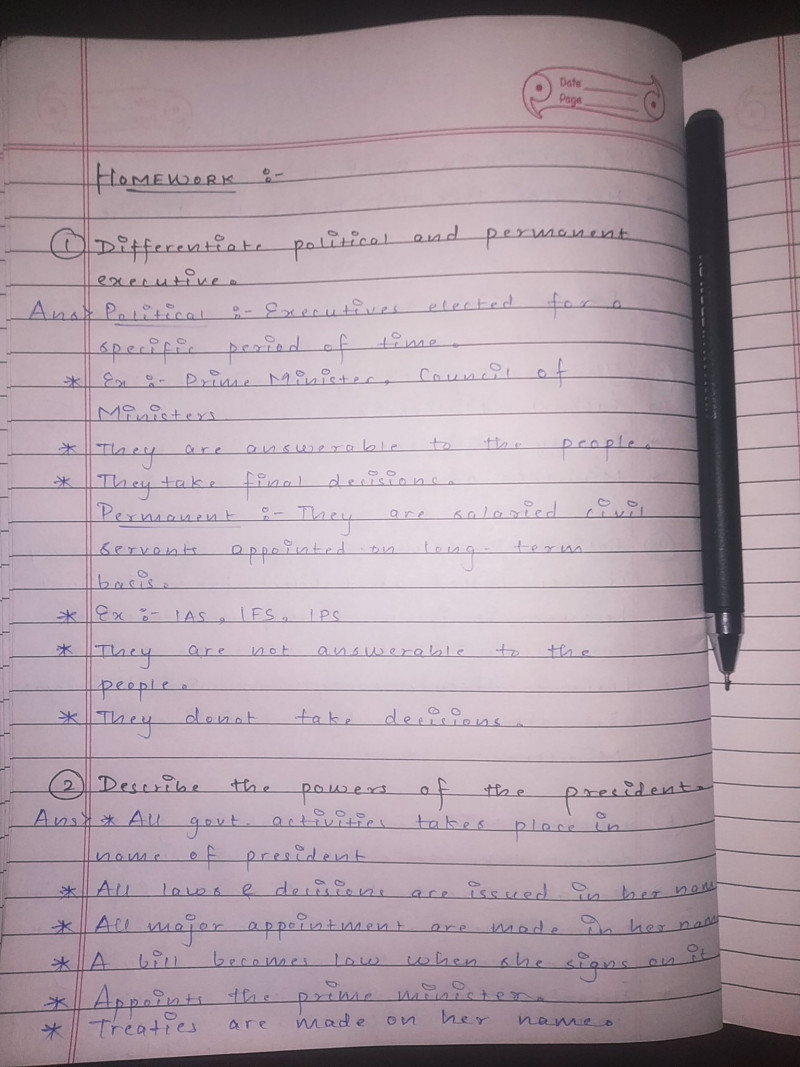 Date
Page
HOMEWORK :-
① Differentiate political and permanent
executive.
Ans> Political :- Executives elected for a
specific period of time.
* Ex :- Prime Minister, Council of
Ministers
* They are answerable to the people.
* They take final decisions.
Permanent :- They are salaried civil
servants appointed on long-term
basis.
* Ex :- IAS, IFS, IPS
* They are not answerable to the
people.
* They donot take decisions.
② Describe the powers of the president.
Ans> * All govt. activities takes place in
name of president
* All laws & decisions are issued in her name
* All major appointment are made in her name
* A bill becomes law when she signs on it
* Appoints the prime minister.
* Treaties are made on her name.